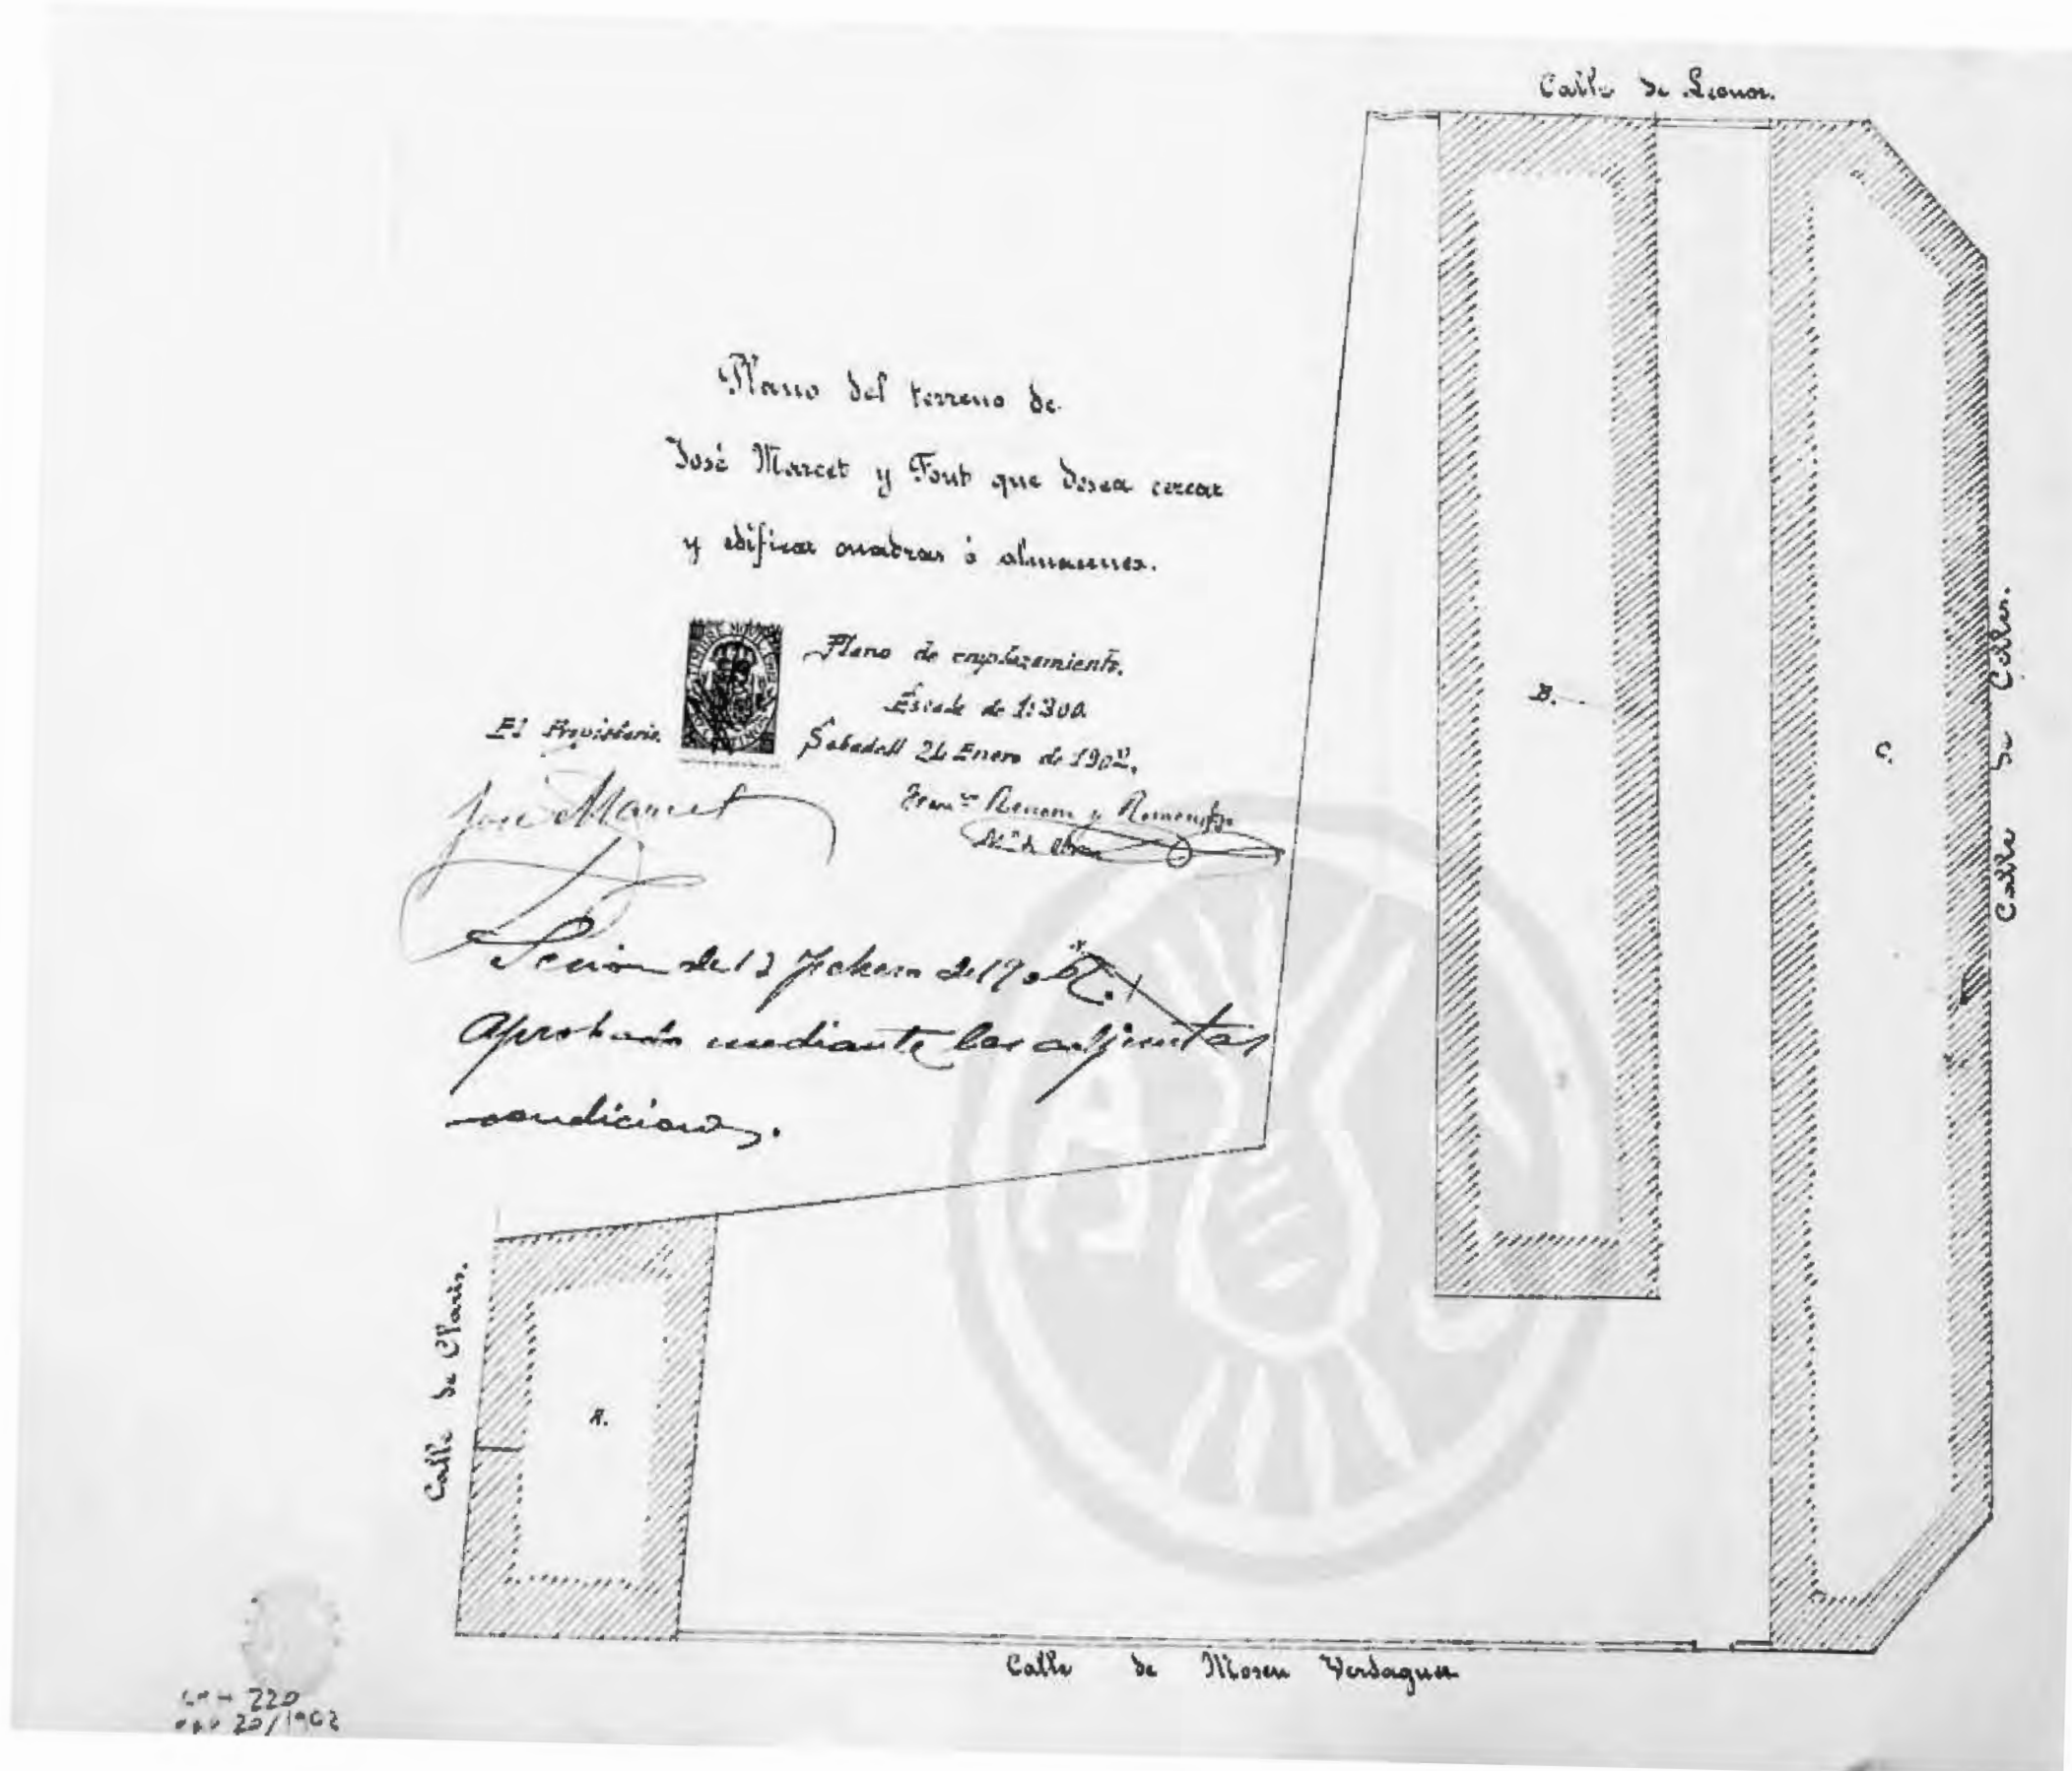 Calle de Leonor.
Plano del terreno de
José Marcet y Font que desea cercar
y edificar cuadras ó almacenes.
TIMBRE MOVIL
Plano de emplazamiento.
Escala de 1:300.
El Propietario.
Sabadell 24 Enero de 1902.
José Marcet
Franco Renom y Romeu
Mo de Obras
Sesion de 12 Febrero de 1902.
Aprobado mediante las adjuntas
condiciones.
B.
C.
Calle de Coller.
Calle de Claris.
A.
Calle de Mosen Verdaguer
220
20/1902